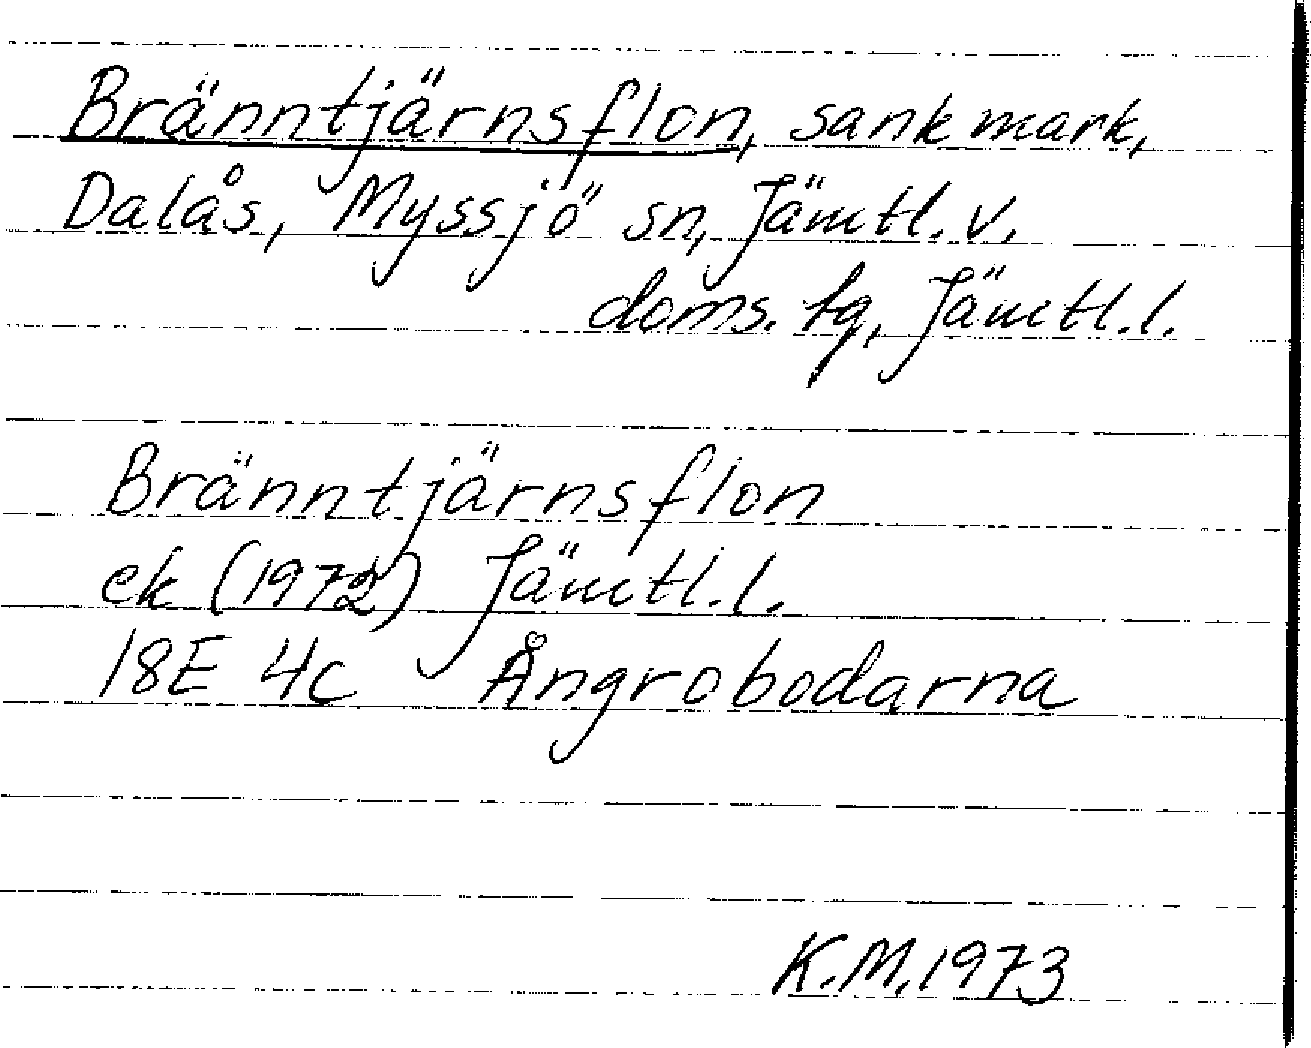 Bränntjärnsflon, sankmark,
Dalås, Myssjö sn, Jämtl. v.
doms. tg, Jämtl. l.
Bränntjärnsflon
ek (1972) Jämtl. l.
18E 4c Ångrobodarna
K.M. 1973